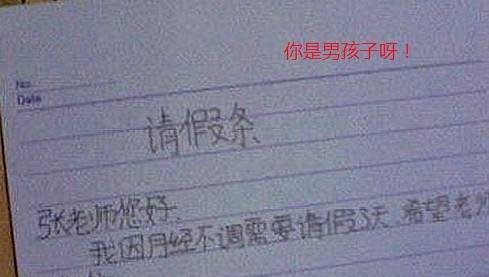 你是男孩子呀！
No.
Date
请假条
张老师您好
我因月经不调需要请假3天 希望老师